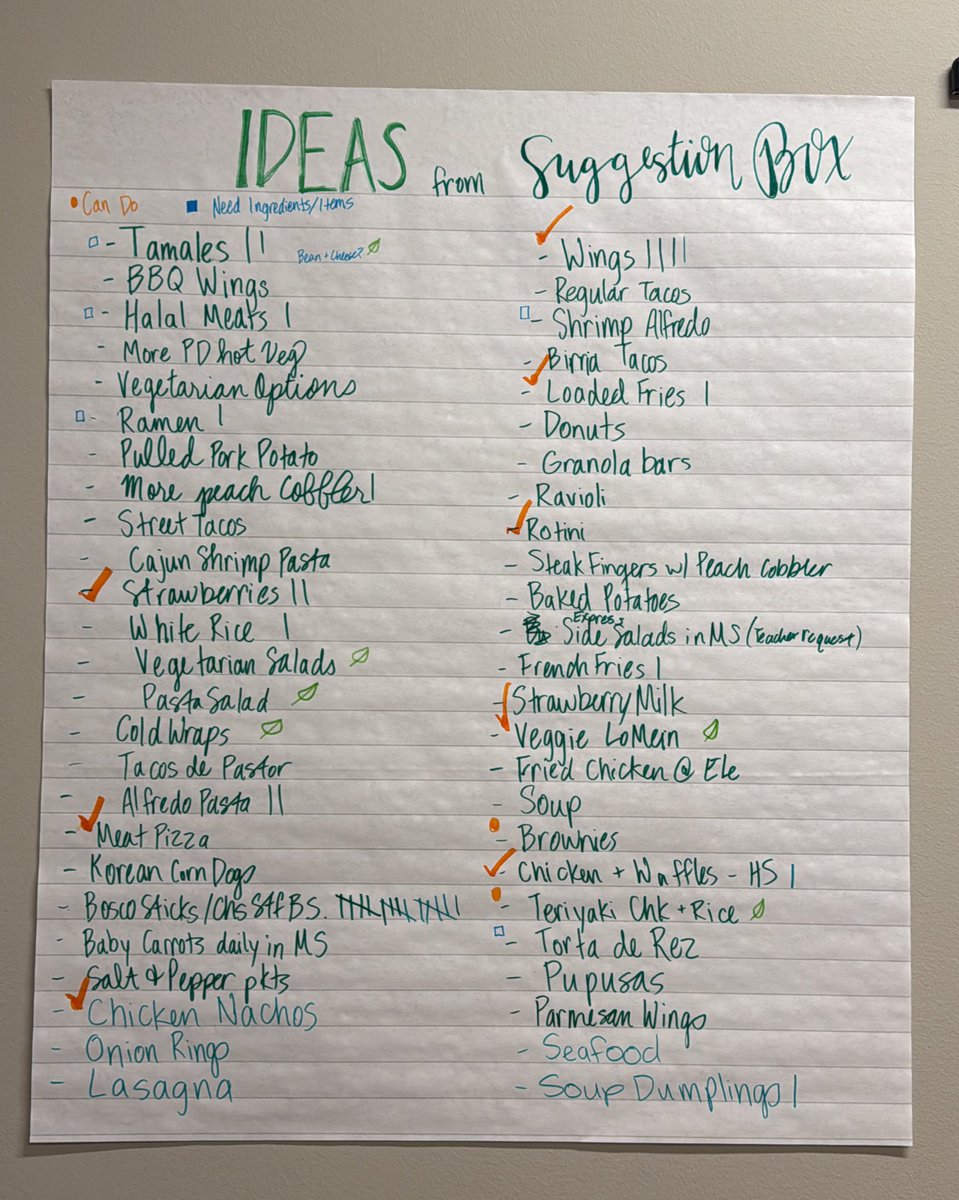 IDEAS from Suggestion Box
Can Do Need Ingredients/Items
- Tamales || Bean + Cheese?
- BBQ Wings
- Halal Meats |
- More PD hot Veg
- Vegetarian Options
- Ramen |
- Pulled Pork Potato
- More peach cobbler |
- Street Tacos
- Cajun Shrimp Pasta
- Strawberries ||
- White Rice |
- Vegetarian Salads
- Pasta Salad
- Cold Wraps
- Tacos de Pastor
- Alfredo Pasta ||
- Meat Pizza
- Korean Corn Dogs
- Bosco Sticks/Chs Stf BS.
- Baby Carrots daily in MS
- Salt & Pepper pkts
- Chicken Nachos
- Onion Rings
- Lasagna
- Wings ||||
- Regular Tacos
- Shrimp Alfredo
- Birria Tacos
- Loaded Fries |
- Donuts
- Granola bars
- Ravioli
- Rotini
- Steak Fingers w/ Peach cobbler
- Baked Potatoes
- Express Side Salads in MS (Teacher request)
- French Fries |
- Strawberry Milk
- Veggie LoMein
- Fried Chicken @ Ele
- Soup
- Brownies
- Chicken + Waffles - HS |
- Teriyaki Chk + Rice
- Torta de Rez
- Pupusas
- Parmesan Wings
- Seafood
- Soup Dumplings |